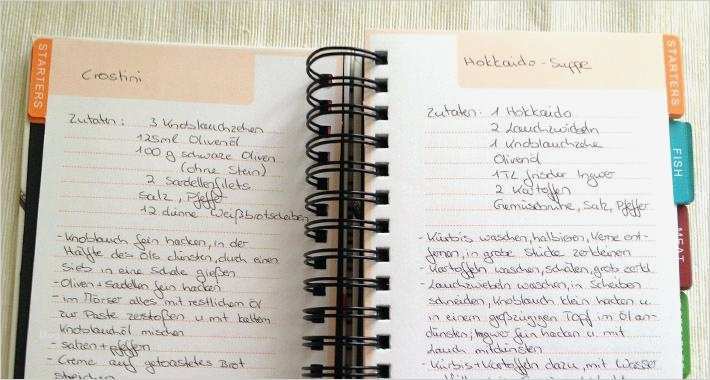 STARTERS
Crostini
Zutaten: 3 Knoblauchzehen
125ml Olivenöl
100 g schwarze Oliven
(ohne Stein)
2 Sardellenfilets
Salz, Pfeffer
12 dünne Weißbrotscheiben
- Knoblauch fein hacken, in der
Hälfte des Öls dünsten, durch einen
Sieb in eine Schale gießen
- Oliven + Sardellen fein hacken
- im Mörser alles mit restlichem Öl
zur Paste zerstoßen u. mit kaltem
Knoblauchöl mischen
- salzen + pfeffern
- Creme auf getoastetes Brot
streichen
STARTERS
FISH
MEAT
Hokkaido-Suppe
Zutaten: 1 Hokkaido
2 Lauchzwiebeln
1 Knoblauchzehe
Olivenöl
1TL frischer Ingwer
2 Kartoffeln
Gemüsebrühe, Salz, Pfeffer
- Kürbis waschen, halbieren, Kerne ent-
fernen, in grobe Stücke zerkleinern
- Kartoffeln waschen, schälen, grob zerkl.
- Lauchzwiebeln waschen, in Scheiben
schneiden, Knoblauch klein hacken u.
in einem großzügigen Topf im Öl an-
dünsten, Ingwer fein hacken u. mit
Lauch mitdünsten
- Kürbis + Kartoffeln dazu, mit Wasser